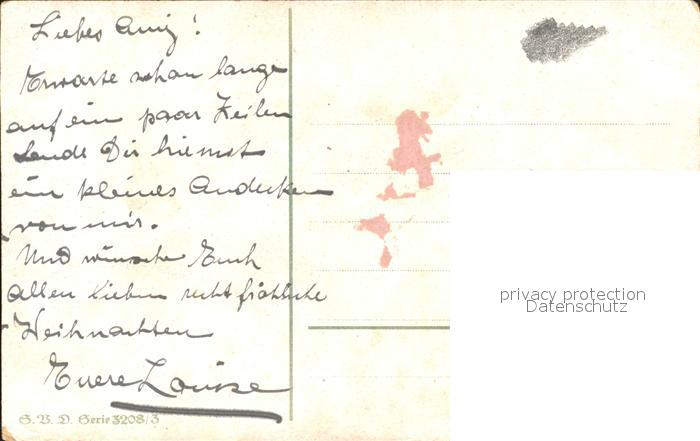 Liebes Anny!
Erwarte schon lange
auf ein paar Zeilen
Sende Dir hiemit
ein kleines Andecken
von mir.
Und wünsche Euch
allen Lieben recht fröhliche
Weihnachten
Euere Louise
S. V. D. Serie 3208/3
privacy protection
Datenschutz